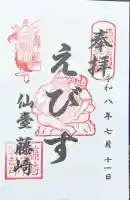 奉拝
令和八年七月十一日
えびす
仙臺 藤崎